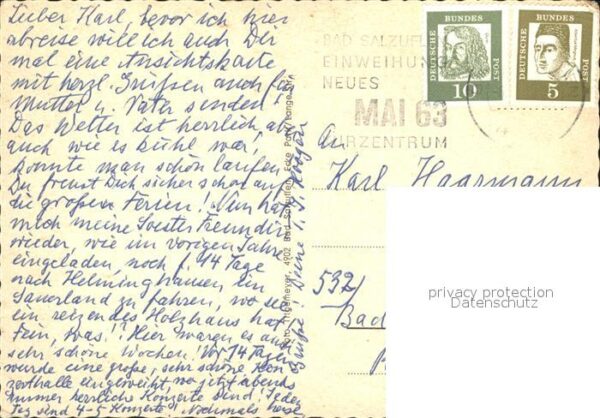 Lieber Karl, bevor ich hier
abreise will ich auch Dir
mal eine Ansichtskarte
mit herzl. Grüßen auch für
Mutter u. Vater senden!
Das Wetter ist herrlich, ab
auch wie es kühl war,
konnte man schön laufen.
Du freust Dich sicher schon auf
die großen Ferien! Nun hat
mich meine Soester Freundin
wieder, wie im vorigen Jahre
eingeladen, noch f. 14 Tage
nach Helminghausen im
Sauerland zu fahren, wo sie
ein reizendes Holzhaus hat
Fein, was! Hier waren es auch
sehr schöne Wochen. Vor 14 Tagen
wurde eine große, sehr schöne Kon
zerthalle eingeweiht wo jetzt abends
immer herrliche Konzerte sind! Jeden
Tag sind 4-5 Konzerte! Nochmals herzl
Grüße! Deine
Foto 4902 Bad Salzuflen, Ecke Park
BAD SALZUFL
EINWEIHUNG
NEUES
MAI 63
KURZENTRUM
DEUTSCHE BUNDES POST
10
DEUTSCHE BUNDES POST
5
An
Karl Haarmann
532
Bad
privacy protection
Datenschutz